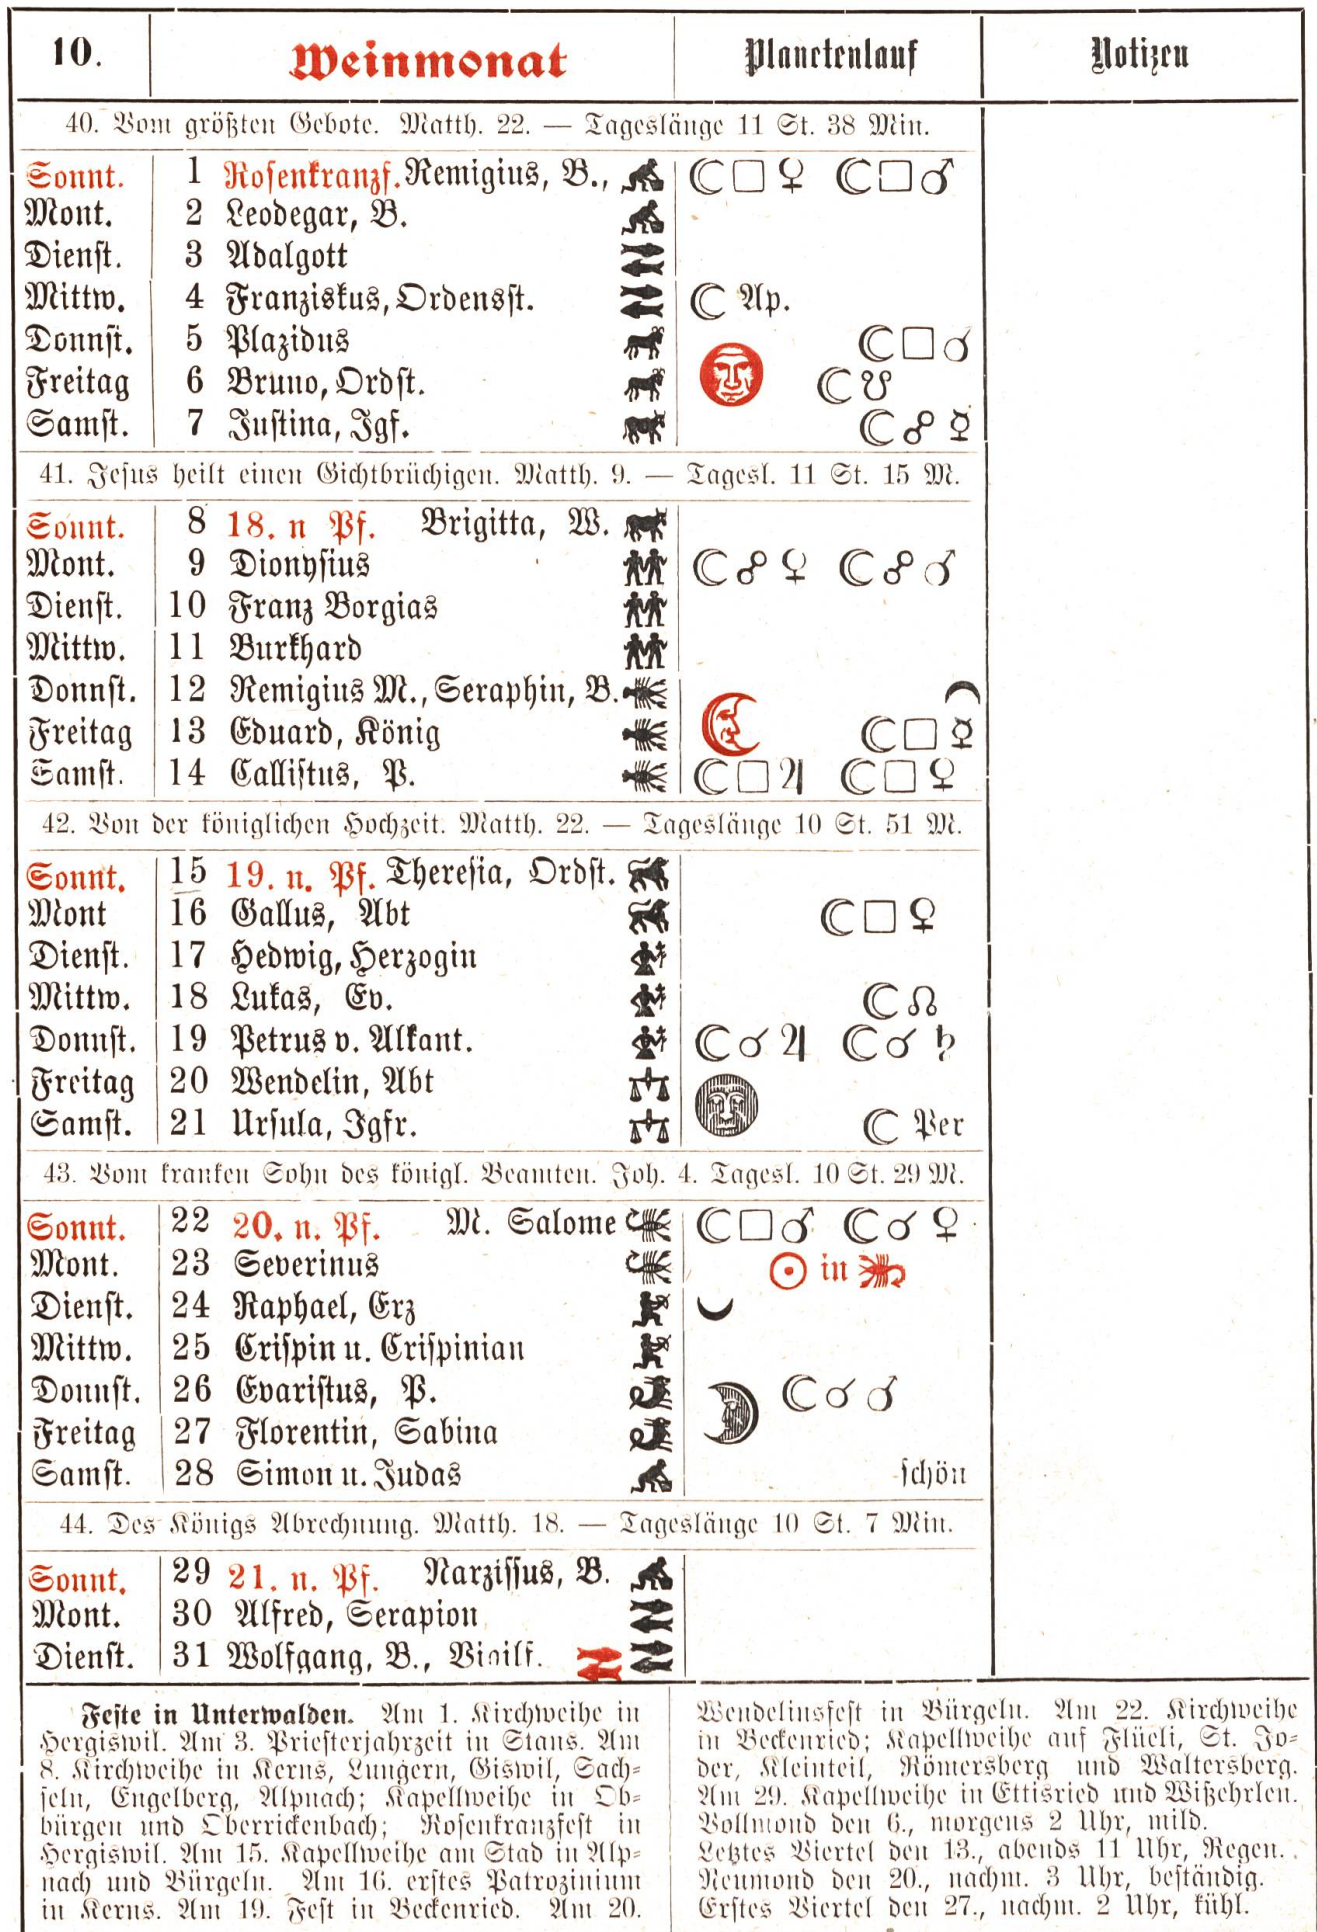 10. Weinmonat Planetenlauf Notizen
40. Vom größten Gebote. Matth. 22. — Tageslänge 11 St. 38 Min.
Sonnt. 1 Rosenkranzf. Remigius, B., ☾□♀ ☾□♂
Mont. 2 Leodegar, B.
Dienst. 3 Adalgott
Mittw. 4 Franziskus, Ordensst. ☾ Ap.
Donnst. 5 Plazidus ☾□☌
Freitag 6 Bruno, Ordst. ☾☋
Samst. 7 Justina, Jgf. ☾☍☿
41. Jesus heilt einen Gichtbrüchigen. Matth. 9. — Tagesl. 11 St. 15 M.
Sonnt. 8 18. n Pf. Brigitta, W.
Mont. 9 Dionysius ☾☍♀ ☾☍♂
Dienst. 10 Franz Borgias
Mittw. 11 Burkhard
Donnst. 12 Remigius M., Seraphin, B.
Freitag 13 Eduard, König ☾□☿
Samst. 14 Callistus, P. ☾□♃ ☾□♀
42. Von der königlichen Hochzeit. Matth. 22. — Tageslänge 10 St. 51 M.
Sonnt. 15 19. n. Pf. Theresia, Ordst.
Mont 16 Gallus, Abt ☾□♀
Dienst. 17 Hedwig, Herzogin
Mittw. 18 Lukas, Ev. ☾☊
Donnst. 19 Petrus v. Alkant. ☾☌♃ ☾☌♄
Freitag 20 Wendelin, Abt
Samst. 21 Ursula, Jgfr. ☾ Per
43. Vom kranken Sohn des königl. Beamten. Joh. 4. Tagesl. 10 St. 29 M.
Sonnt. 22 20. n. Pf. M. Salome ☾□♂ ☾☌♀
Mont. 23 Severinus ☉ in
Dienst. 24 Raphael, Erz
Mittw. 25 Crispin u. Crispinian
Donnst. 26 Evaristus, P. ☾☌♂
Freitag 27 Florentin, Sabina
Samst. 28 Simon u. Judas schön
44. Des Königs Abrechnung. Matth. 18. — Tageslänge 10 St. 7 Min.
Sonnt. 29 21. n. Pf. Narzissus, B.
Mont. 30 Alfred, Serapion
Dienst. 31 Wolfgang, B., Vigilf.
Feste in Unterwalden. Am 1. Kirchweihe in
Hergiswil. Am 3. Priesterjahrzeit in Stans. Am
8. Kirchweihe in Kerns, Lungern, Giswil, Sach-
seln, Engelberg, Alpnach; Kapellweihe in Ob-
bürgen und Oberrickenbach; Rosenkranzfest in
Hergiswil. Am 15. Kapellweihe am Stad in Alp-
nach und Bürgeln. Am 16. erstes Patrozinium
in Kerns. Am 19. Fest in Beckenried. Am 20.
Wendelinsfest in Bürgeln. Am 22. Kirchweihe
in Beckenried; Kapellweihe auf Flüeli, St. Jo-
der, Kleinteil, Römersberg und Waltersberg.
Am 29. Kapellweihe in Ettisried und Wißehrlen.
Vollmond den 6., morgens 2 Uhr, mild.
Letztes Viertel den 13., abends 11 Uhr, Regen.
Neumond den 20., nachm. 3 Uhr, beständig.
Erstes Viertel den 27., nachm. 2 Uhr, kühl.